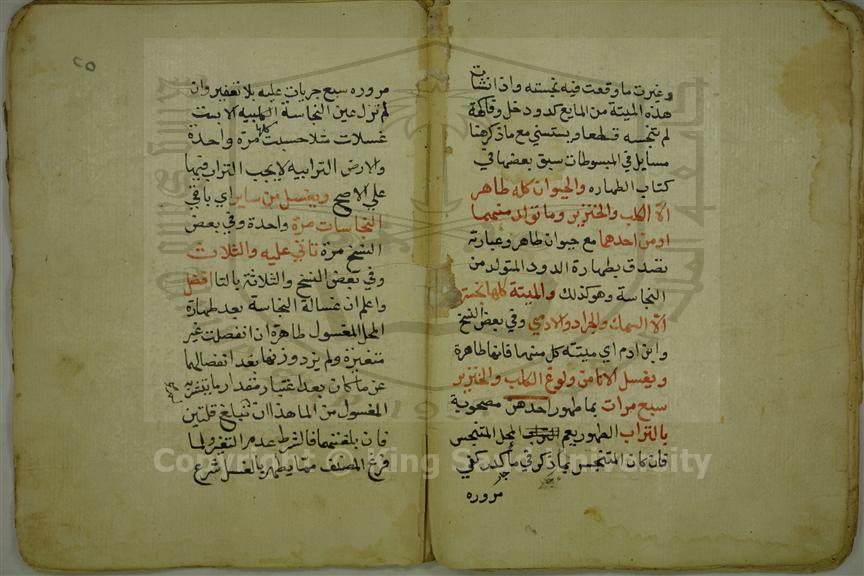 وغيرت ما وقعت فيه نجسته واذا نشات
هذه الميتة من المايع كدود خل وفاكهة
لم تنجسه قطعا ويستثني مع ما ذكر هنا
مسايل في المبسوطات سبق بعضها في
كتاب الطهاره والحيوان كله طاهر
الا الكلب والخنزير وما تولد منهما
او من احدهما مع حيوان طاهر وعبارته
تصدق بطهارة الدود المتولد من
النجاسة وهو كذلك والميتة كلها نجسة
الا السمك والجراد والادمي وفي بعض النسخ
وابن ادم اي ميتته كل منهما فانها طاهرة
ويغسل الانا من ولوغ الكلب والخنزير
سبع مرات بما طهور احدهن مصحوبة
بالتراب الطهور يعم المحل المتنجس
فان كان المتنجس بما ذكر في ما كدر كفي
مروره
٢٥
مروره سبع جريات عليه بلا تعفير وان
لم تزل عين النجاسة الكلبيه الا بست
غسلات مثلا حسبت كلها مرة واحدة
والارض الترابيه لا يجب التراب فيها
علي الاصح ويغسل من ساير اي باقي
النجاسات مرة واحدة وفي بعض
النسخ مرة تاتي عليه والثلاث
وفي بعض النسخ والثلاثة بالتا افضل
واعلم ان غسالة النجاسة بعد طهارة
المحل المغسول طاهرة ان انفصلت غير
متغيرة ولم يزد وزنها بعد انفصالها
عن ما كان بعد اعتبار مقدار ما يتشربه
المغسول من الما هذا ان لم تبلغ قلتين
فان بلغتهما فالشرط عدم التغير ولما
فرغ المصنف مما يطهر بالغسل شرع
Copyright © King Saud University